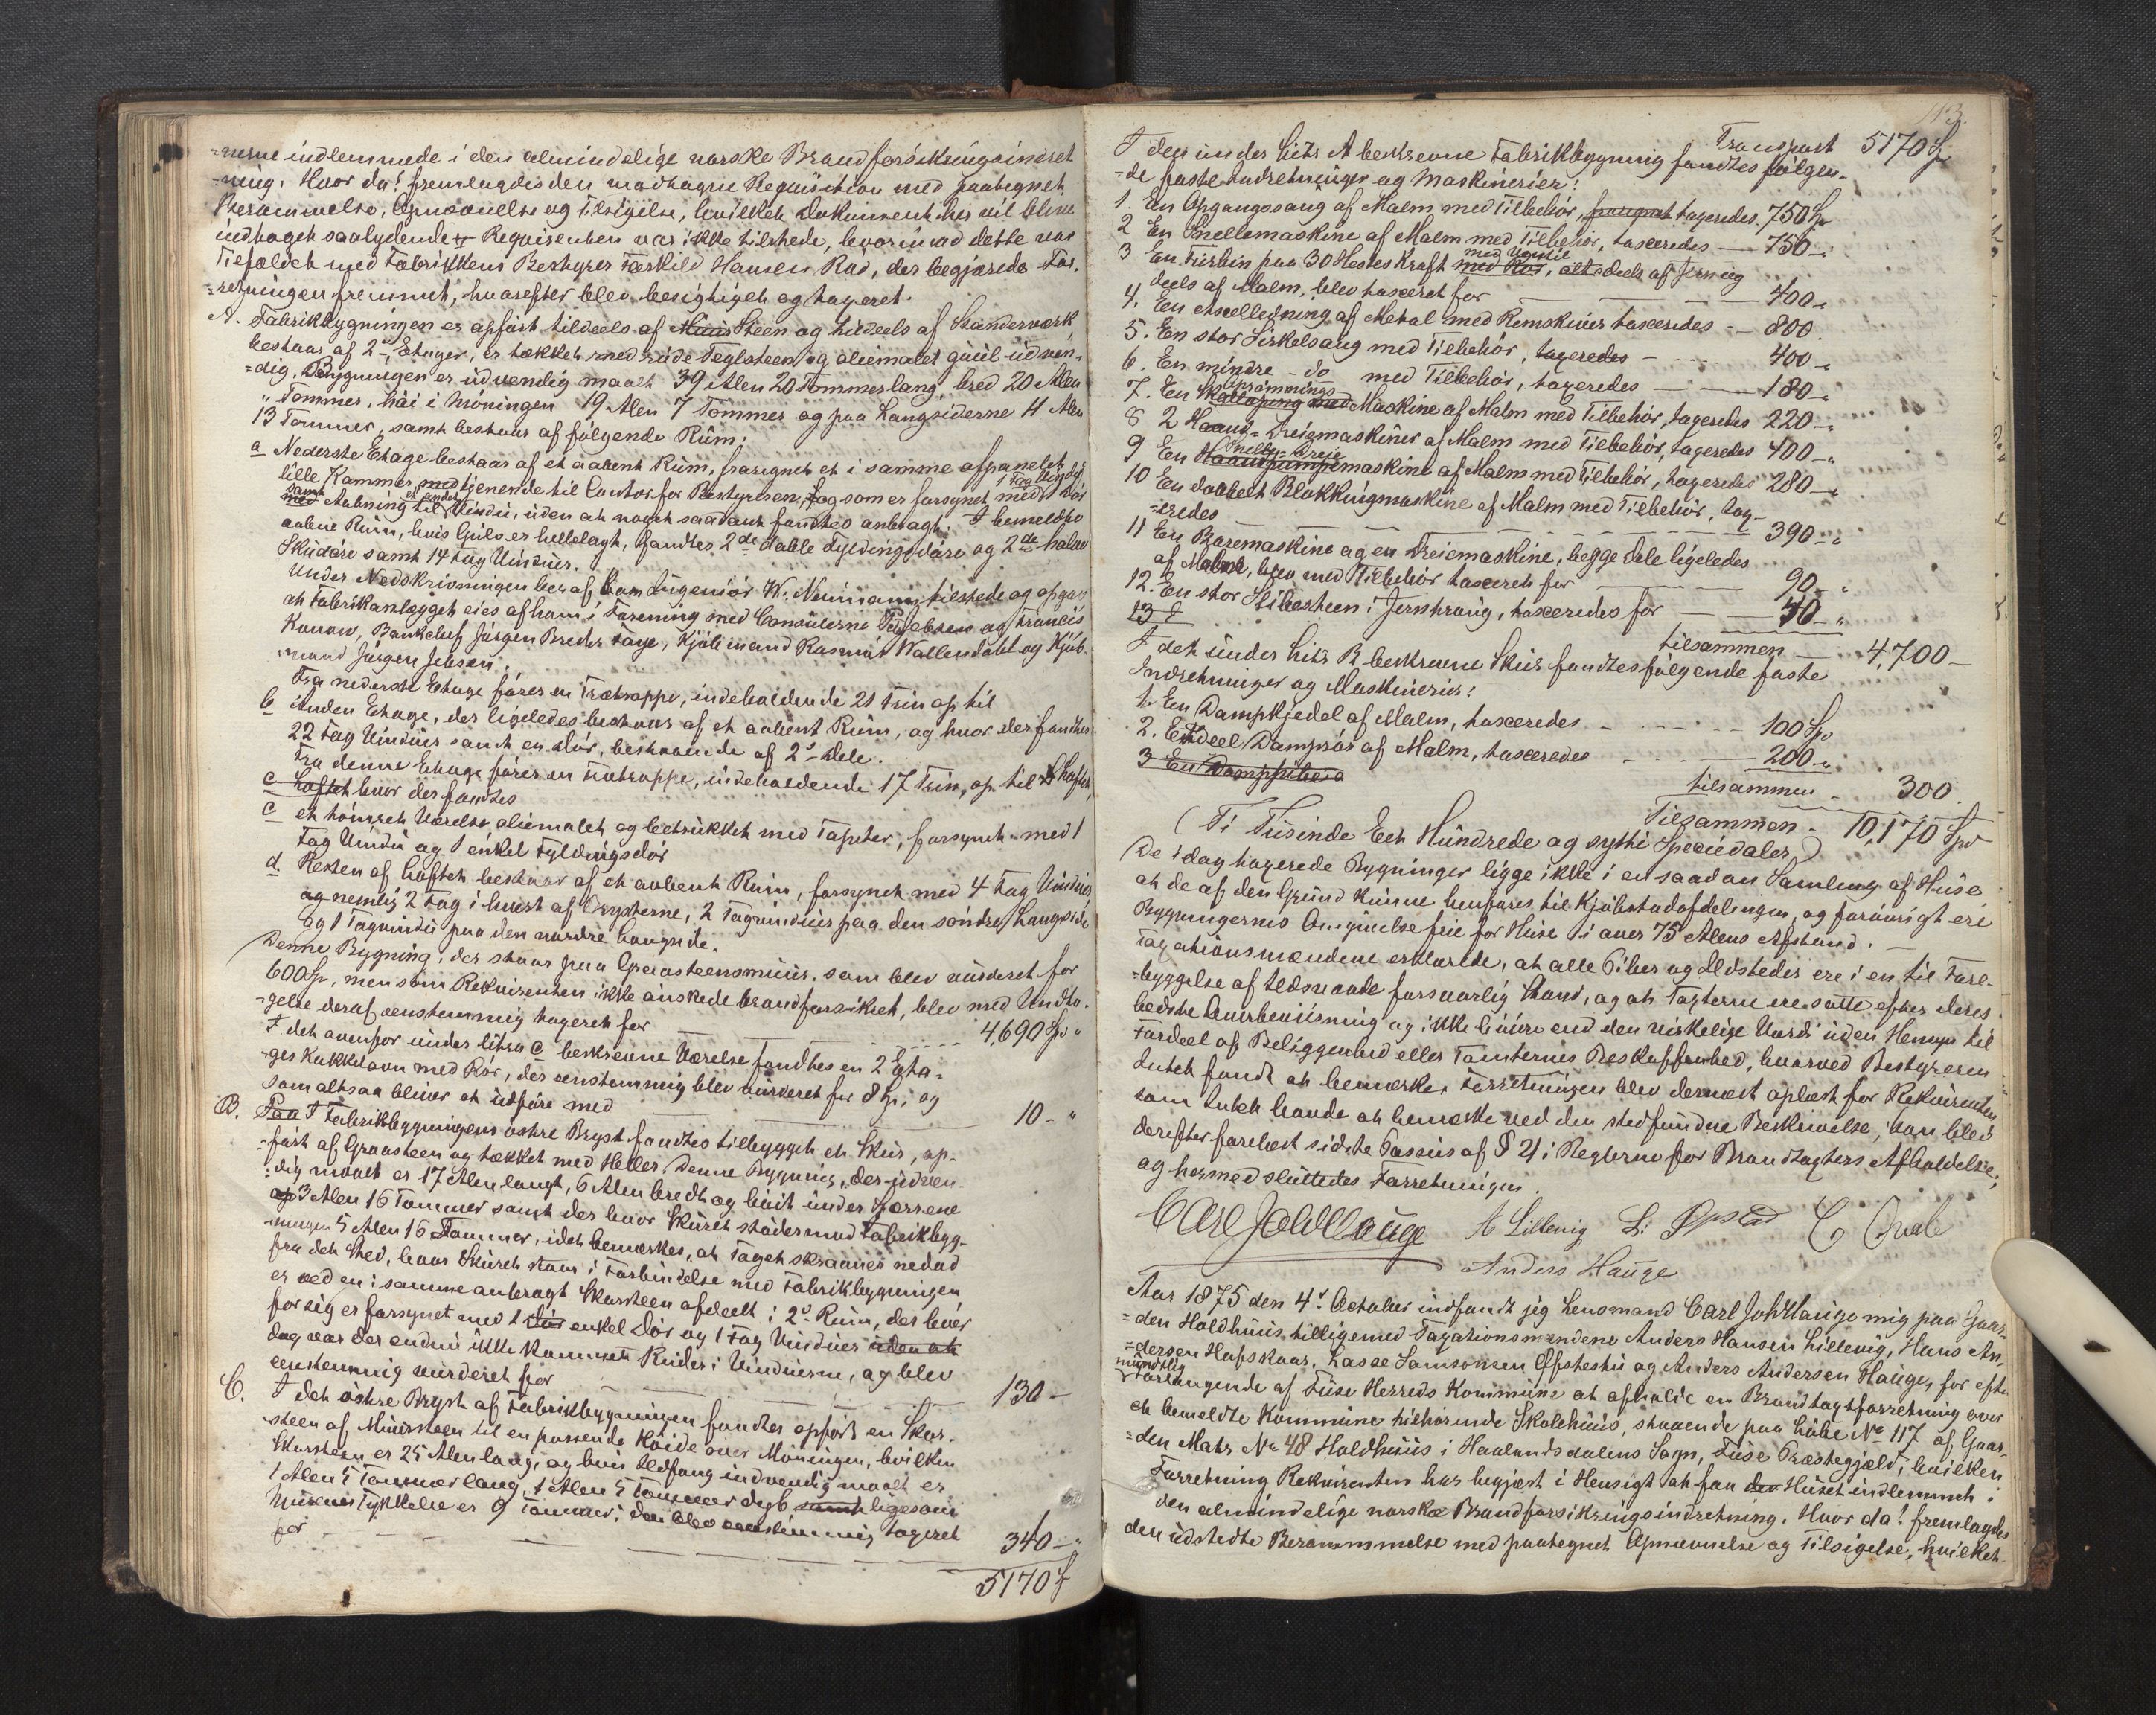 =nerne indlemmede i den almindelige norske Brandforsikringsindret
=ning. Hvor da! fremlagdes den modtagne Requisition med paategnet
Berammelse, Opnævnelse og Tilsigelse, hvilket Dokument her vil blive
indtaget saalydende: Reqvirenten var ikke tilstede, hvorimod dette var
Tilfældet med Fabrikkens Bestyrer Tærkild Hansen Rød, der begjærede For-
=retningen fremmet, hvorefter blev besigtiget og taxeret.
A. Fabrikbygningen er opført tildeels af Muur Steen og tildeels af Standerværk
bestaar af 2de Etager, er tækket med røde Teglsteen og oliemalet guul udven-
=dig. Bygningen er udvendig maalt 39 Alen 20 Tommer lang, bred 20 Alen
" Tommer, høi i Møningen 19 Alen 7 Tommer og paa Langsiderne 11 Alen
13 Tommer, samt bestaar af følgende Rum:
a Nederste Etage bestaar af et aabent Rum, fraregnet et i samme afpanelet
lille Kammer med tjenende til Contor for Bestyreren, og som er forsynet med 1 Fag Vindu, 1 Dør
samt Aabning til et andet Vindu, uden at noget saadant fandtes anbragt. I bemeldte
aabne Rum, hvis Gulv er hellelagt, fandtes 2de doble Fyldingsdøre og 2de halve
Skuddøre samt 14 Fag Vinduer.
Under Nedskrivningen heraf kom Ingeniør W. Neumann tilstede og opgav
at Fabrikanlægget eies af ham i Forening med Consulerne P. Jebsen og Francis
Konow, Bankchef Jørgen Breder Faye, Kjøbmand Rasmus Wallendahl og Kjøb-
mand Jürgen Jebsen.
Fra nederste Etage fører en Trætrappe, indeholdende 21 Trin op til
b Anden Etage, der ligeledes bestaar af et aabent Rum, og hvor der fandtes
22 Fag Vinduer samt en Dør, bestaaende af 2de Dele.
Fra denne Etage fører en Trætrappe, indeholdende 17 Trin, op til Loftet,
c Loftet hvor der fandtes
c et tømret Værelse oliemalet og betrukket med Tapeter, forsynet med 1
Fag Vindu og 1 enkel Fyldingsdør
d. Resten af Loftet bestaar af et aabent Rum, forsynet med 4 Fag Vinduer
og nemlig 2 Fag i hvert af Brysterne, 2 Tagvinduer paa den søndre Langside
og 1 Tagvindu paa den nordre Langside.
Denne Bygning, der staar paa Graasteensmuur, som blev vurderet for
600 Sp, men som Rekvirenten ikke ønskede brandforsikret, blev med Undta-
gelse deraf eenstemmig taxeret for 4,690 Spd "
I det ovenfor under litra C beskrevne Værelse fandtes en 2 Eta-
=ges Kakkelovn med Rør, der eenstemmig blev vurderet for 8 Sp, og
som altsaa bliver at udføre med 10 - "
B. Paa I Fabrikbygningens østre Bryst fandtes tilbygget et Skur, op-
=ført af Graasteen og tækket med Heller. Denne Bygning, der udven-
=dig maalt er 17 Alen langt, 6 Alen bredt og høit under Tørrene
op 3 Alen 16 Tommer samt der hvor Skuret støder mod Fabrikbyg-
ningen 5 Alen 16 Tommer, idet bemærkes, at Taget skraaner nedad
fra det Sted, hvor Skuret staar i Forbindelse med Fabrikbygningen
er ved en i samme anbragt Skorsteen afdeelt i 2de Rum, der hver
for sig er forsynet med 1 Dør enkel Dør og 1 Fag Vinduer uden at
dog var der endnu ikke kommet Ruder i Vinduerne, og blev
eenstemmig vurderet for 130 -
C. I det østre Bryst af Fabrikbygningen fandtes opført en Skor-
=steen af Muursteen til en passende Høide over Møningen, hvilken
Skorsteen er 25 Alen lang, og hvis Ildfang indvendig maalt er
1 Alen 5 Tommer lang, 1 Alen 5 Tommer dyb samt ligesom
Murens Tykkelse er 9 Tommer; den blev eenstemmig taxeret
for 340 - "
5170 Sp
113.
Transport 5170 Sp
I den under Litr A beskrevne Fabrikbygning fandtes følgen-
=de faste Indretninger og Maskinerier:
1. En Opgangssaug af Malm med Tilbehør, taxeredes 750 Sp
2 En Snellemaskine af Malm med Tilbehør, taxeredes - 750 - "
3 En Turbin paa 30 Hestes Kraft med Rør, deels af Jern og
deels af Malm, blev taxeret for 400 - "
4. En Axelledning af Metal med Remskiver taxeredes - 800
5. En stor Sirkelsaug med Tilbehør, taxeredes - 400 - "
6. En mindre - do med Tilbehør, taxeredes - 180 - "
7. En Maskine af Malm med Tilbehør, taxeredes 220 - "
8 2 Haand-Dreiemaskiner af Malm med Tilbehør, taxeredes 400 - "
9 En Snelle-Dreie Haandpumpemaskine af Malm med Tilbehør, taxeredes 280 - "
10 En dobbelt Blokkingmaskine af Malm med Tilbehør, tax-
=eredes 390 - "
11 En Boremaskine og en Dreiemaskine, begge dele ligeledes
af Malm, blev med Tilbehør taxeret for 90 - "
12. En stor Slibesteen i Jerntraug, taxeredes for 40 - "
13 E
tilsammen 4,700 -
I det under Litr B beskrevne Skur fandtes følgende faste
Indretninger og Maskinerier:
1. En Dampkjedel af Malm, taxeredes - 100 Spd
2. Endeel Damprør af Malm, taxeredes - 200 - "
3 En
tilsammen - 300
Tilsammen - 10,170 Spd
(Ti Tusinde Eet Hundrede og sytti Speciedaler)
De idag taxerede Bygninger ligge ikke i en saadan Samling af Huse
at de af den Grund kunne henføres til Kjøbstadafdelingen, og forøvrigt ere
Bygningernes Omgivelse frie for Huse i over 75 Alens Afstand.
Taxationsmændene erklærede, at alle Piber og Ildsteder ere i en til Fore-
=byggelse af Ildsvaade forsvarlig Stand, og at Taxterne ere satte efter deres
bedste Overbeviisning og ikke høiere end den virkelige Værdi uden Hensyn til
Fordeel af Beliggenhed eller Tomternes Beskaffenhed, hvorved Bestyreren
Intet fandt at bemærke. Forretningen blev dernæst oplæst for Rekvirenten
som Intet havde at bemærke ved den stedfundne Beskrivelse, han blev
derefter forelæst sidste Passus af § 21 i Reglerne for Brandtaxters Afholdelse,
og hermed sluttedes Forretningen.
Carl Joh Hauge A Lillevig L: Opstad
Anders Hauge
Aar 1875 den 4de October indfandt jeg Lensmand Carl Joh Hauge mig paa Gaar-
=den Holdhuus tilligemed Taxationsmændene Anders Hansen Lillevig, Hans An-
=dersen Hafskaar, Lasse Samsonsen Opstad og Anders Andersen Hauge, for efter
mundtlig Forlangende af Fuse Herreds Kommune at afholde en Brandtaxtforretning over
et bemeldte Kommune tilhørende Skolehuus, staaende paa Løbe No 117 af Gaar-
=den Matr No 48 Holdhuus i Haalandsdalens Sogn, Fuse Præstegjæld, hvilken
Forretning Rekvirenten har begjært i Hensigt at faa den Huset indlemmet i
den almindelige norske Brandforsikringsindretning. Hvor da! fremlagdes
den udstedte Berammelse med paategnet Opnævnelse og Tilsigelse, hvilket